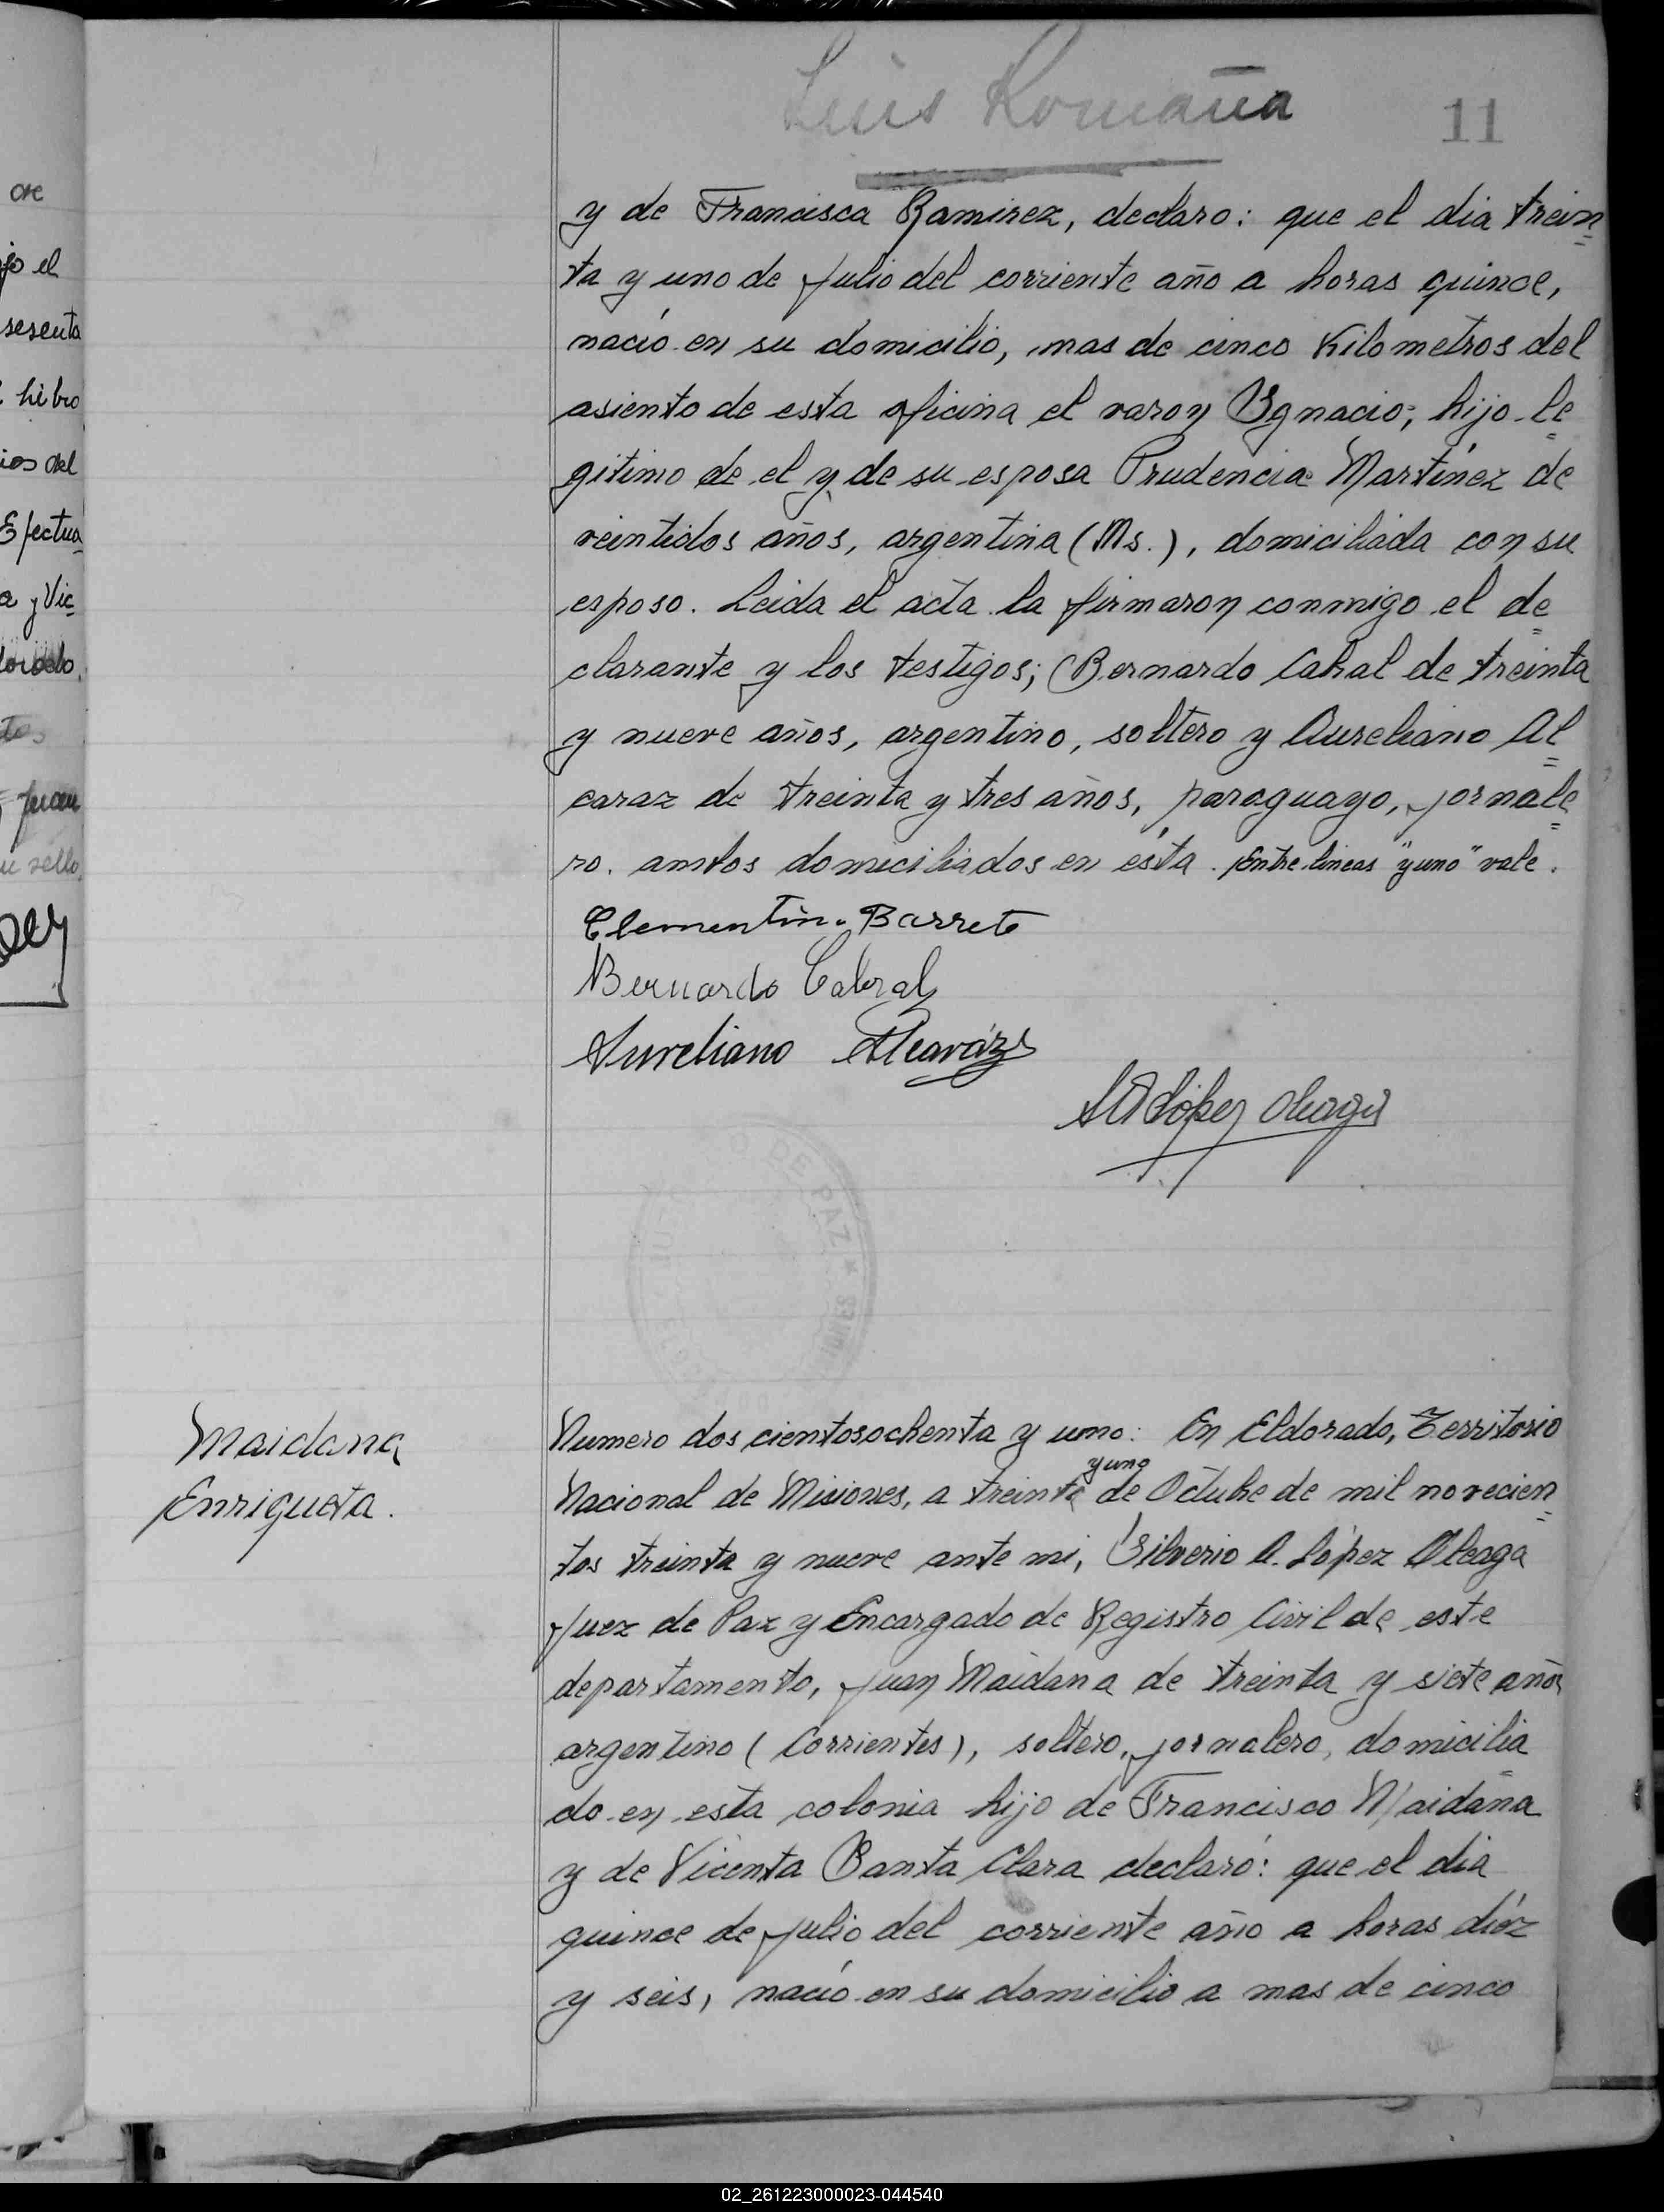 Luis Romaña
11
y de Francisca Ramirez, declaro: que el dia trein=
ta y uno de Julio del corriente año a horas quince,
nació en su domicilio, mas de cinco Kilometros del
asiento de esta oficina el varon Ygnacio; hijo le=
gitimo de el y de su esposa Prudencia Martínez de
veintidos años, argentina (Ms.), domiciliada con su
esposo. Leida el acta la firmaron conmigo el de=
clarante y los testigos; Bernardo Cabral de treinta
y nueve años, argentino, soltero y Aureliano Al=
caraz de treinta y tres años, paraguayo, jornale=
ro. ambos domiciliados en ésta. Entre lineas "y uno" vale.
Clementin. Barreto
Bernardo Cabral
Aureliano Alcaráz
López Aleaga
DE PAZ
Maidana
Enriqueta.
Numero dos cientos ochenta y uno: En Eldorado, Territorio
y uno
Nacional de Misiones, a treinta de Octubre de mil novecien=
tos treinta y nueve ante mi, Silverio A. López Aleaga
Juez de Paz y Encargado de Registro Civil de este
departamento, Juan Maidana de treinta y siete años
argentino (Corrientes), soltero, jornalero, domicilia=
do en esta colonia hijo de Francisco Maidana
y de Vicenta Santa Clara declaró: que el dia
quince de Julio del corriente año a horas diéz
y seis, nació en su domicilio a mas de cinco
ore
jo el
sesenta
hibro
ios del
Efectua
a y Vic=
dorado.
tos
Juan
u sello
02_261223000023-044540